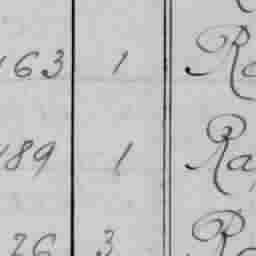 163 1 Ra
189 1 Ra
26 3 Ra